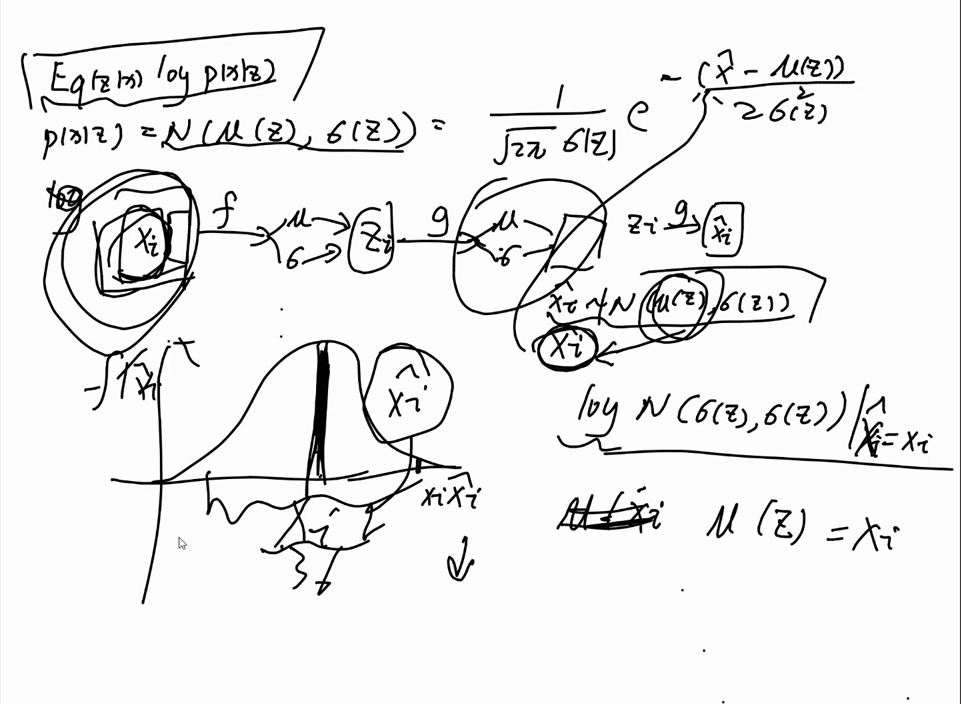 Eq(z|x) log p(x|z)
p(x|z) = N(μ(z), σ(z)) = 1/(√2π σ(z)) e -(x̂ - μ(z))/2σ²(z)
xi f μ σ zi g μ σ zi g x̂i
x̂i ~ N(μ(z), σ(z))
x̂i
x̂i
log N(σ(z), σ(z))|x̂i=xi
xi x̂i
μ(z) = xi